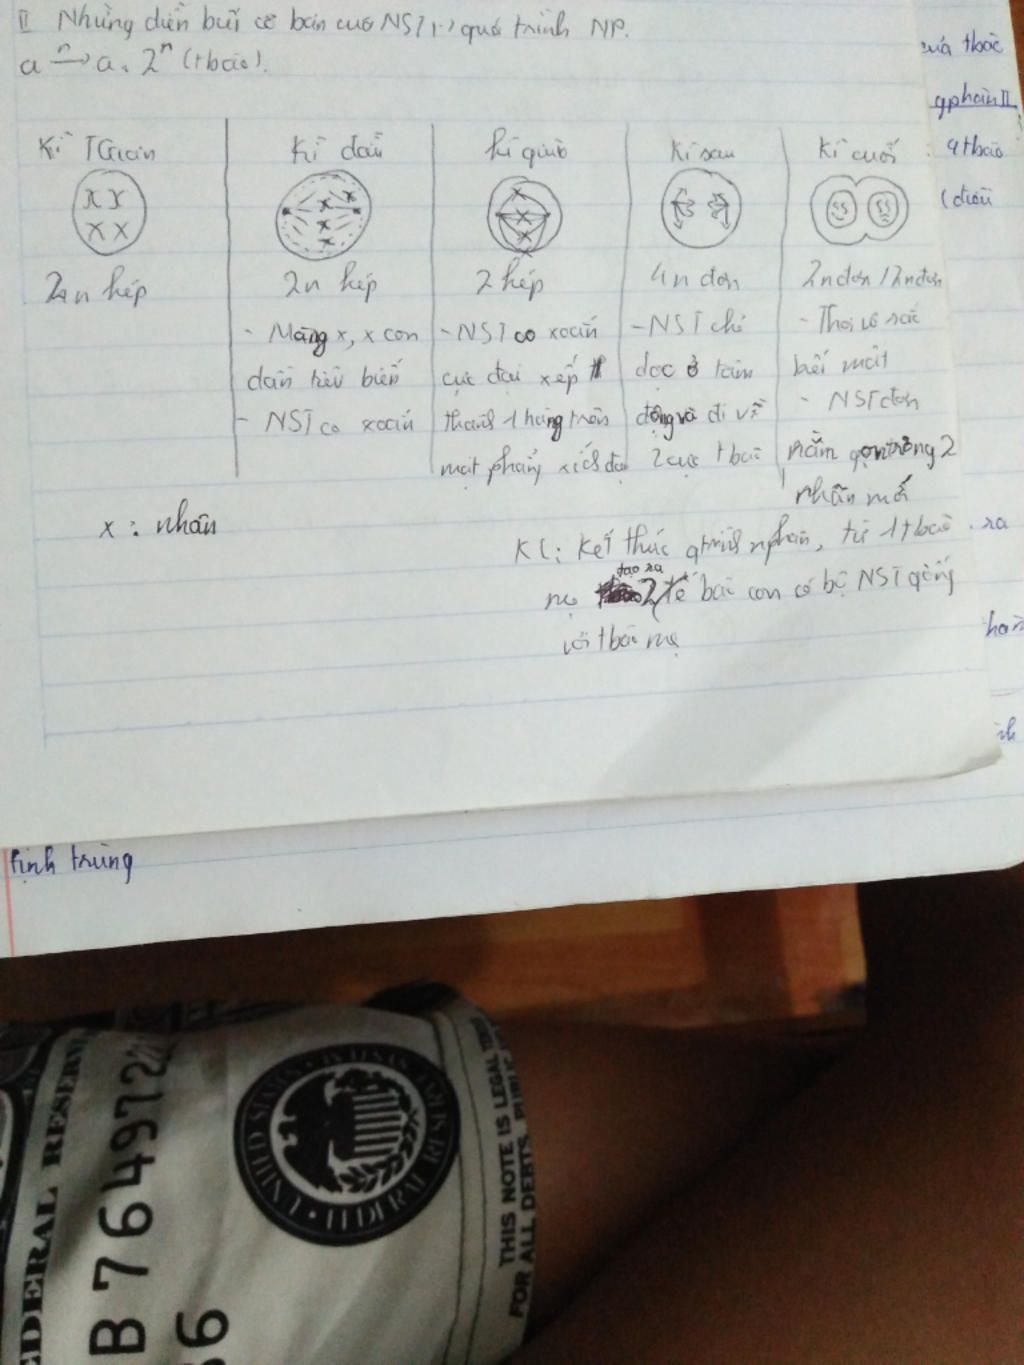 II Những diễn buiǐ cơ bản của NST trong quá trình NP.
a n→ a. 2ⁿ (tbào).
Kì TGian
Kì đầu
Kì giữa
Kì sau
Kì cuối
2n kép
2n kép
2 kép
4n đơn
2n đơn / 2n đơn
- Màng x, x con
dần tiêu biến
- NST co xoắn
- NST co xoắn
cực đại xếp
thành 1 hàng trên
mặt phẳng xích đạo
- NST chẻ
dọc ở tâm
động và đi về
2 cực tbào
- Thoi vô sắc
biến mất
- NST đơn
nằm gọn trong 2
nhân mới
x : nhân
KL: Kết thúc qtrình nphân, từ 1 tbào
mẹ tạo ra 2 tế bào con có bộ NST giống
với tbào mẹ
của tbào
gphân II
4 tbào
(điều
ra
Tinh trùng
FEDERAL RESERVE
B 7649722
6
UNITED STATES
FEDERAL RESERVE SYSTEM
THIS NOTE IS LEGAL TENDER
FOR ALL DEBTS, PUBLIC